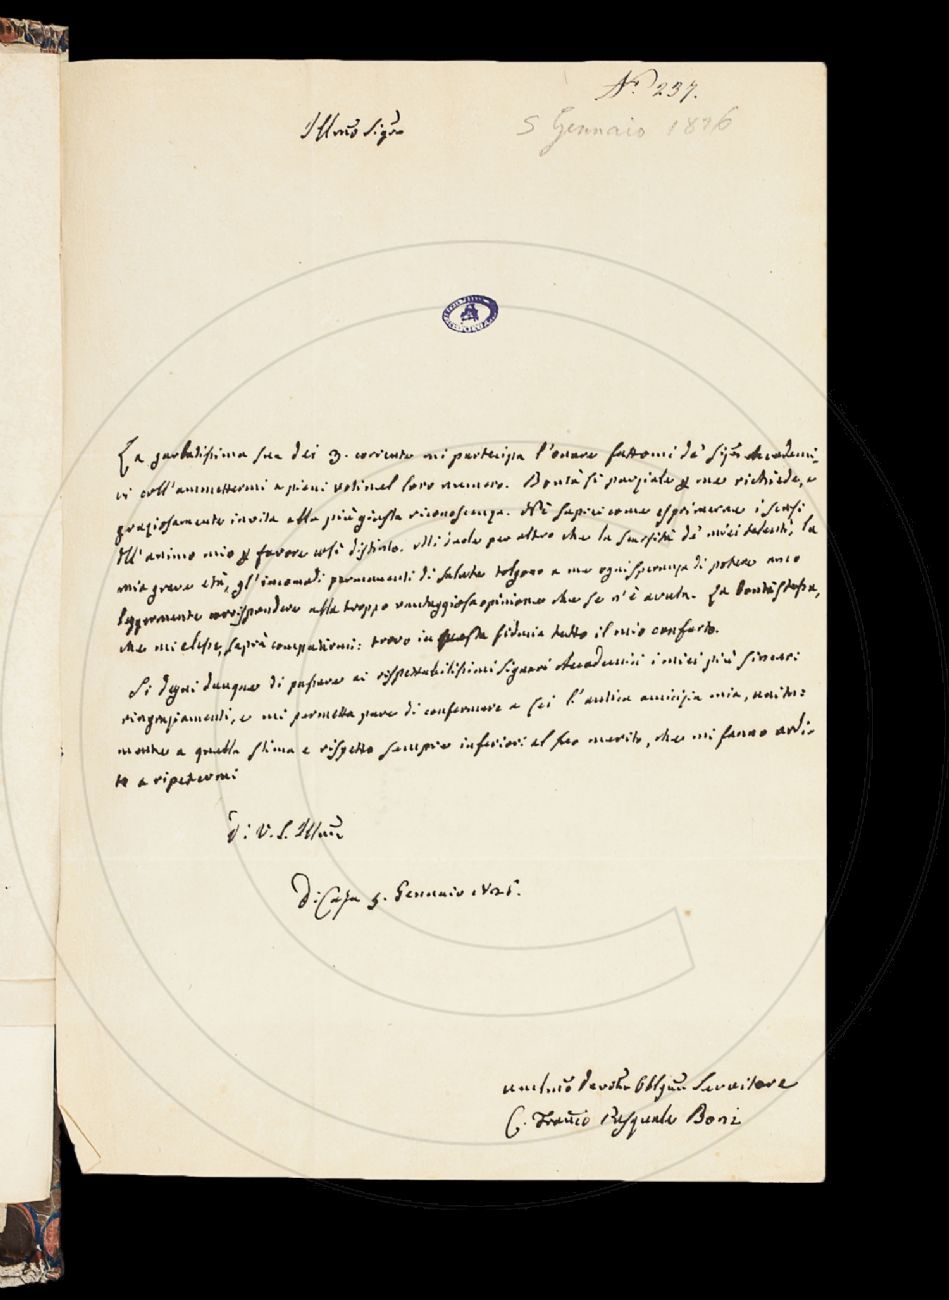 N.º 237.
5 Gennaio 1826
Illmõ Sigre
La garbatissima sua dei 3. corrente mi partecipa l'onore fattomi dè Sigri Accademi-
ci coll'ammettermi a pieni voti nel loro numero. Bontà sì parziale me richiede, e
graziosamente invita alla più giusta riconoscenza. Nè saprei come esprimerne i sensi
dell'animo mio favore così distinto. Mi duole per altro che la scarsità dè miei talenti, la
mia grave età, gl'incomodi permanenti di salute tolgono a me ogni speranza di potere anco
leggermente corrispondere alla troppo vantaggiosa opinione che se n'è avuta. La bontà stessa,
che mi elesse, saprà compatirmi: trovo in questa fiducia tutto il mio conforto.
Si degni dunque di passare ai rispettabilissimi Signori Accademici i miei più sinceri
ringraziamenti, e mi permetta pure di confermare a Lei l'antica amicizia mia, unita-
mente a quella stima e rispetto sempre inferiori al suo merito, che mi fanno ardi-
to a ripetermi
di V. S. Illmã
di Casa 5. Gennaio 1826.
Servitore
C. Franco Pasquale Boni